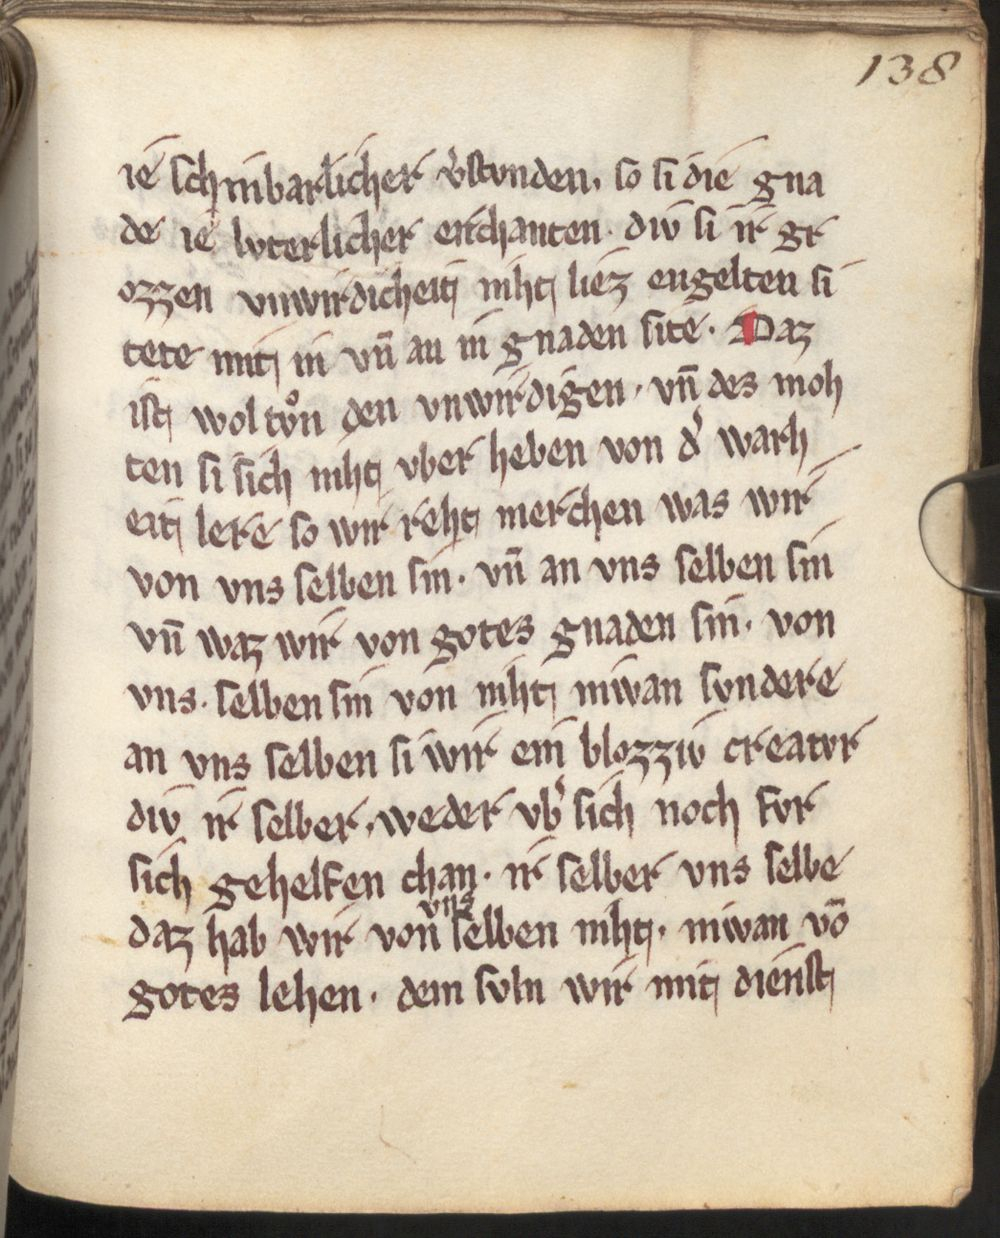 138
ie schinbarlicher v̾stvnden. so si die gna
de ie lvterlicher erchanten. div si ir gr
ozzen vnwirdicheit niht liez engelten si
tete mit in vn̄ an in gnaden site. Daz
ist wol tvͦn den vnwirdigen. vn̄ des moh
ten si sich niht vber heben von d̾ warh
eit lere so wir reht merchen was wir
von vns selben sin. vn̄ an vns selben sin
vn̄ waz wir von gotes gnaden sin. von
vns. selben sin von niht niwan svndere
an vns selben si wir ein blozziv creatvr
div ir selber. weder vb̾ sich noch fvr
sich gehelfen chan. ir selber vns selbe
daz hab wir von vns selben niht. niwan vō
gotes lehen. dem svln wir mit dienst